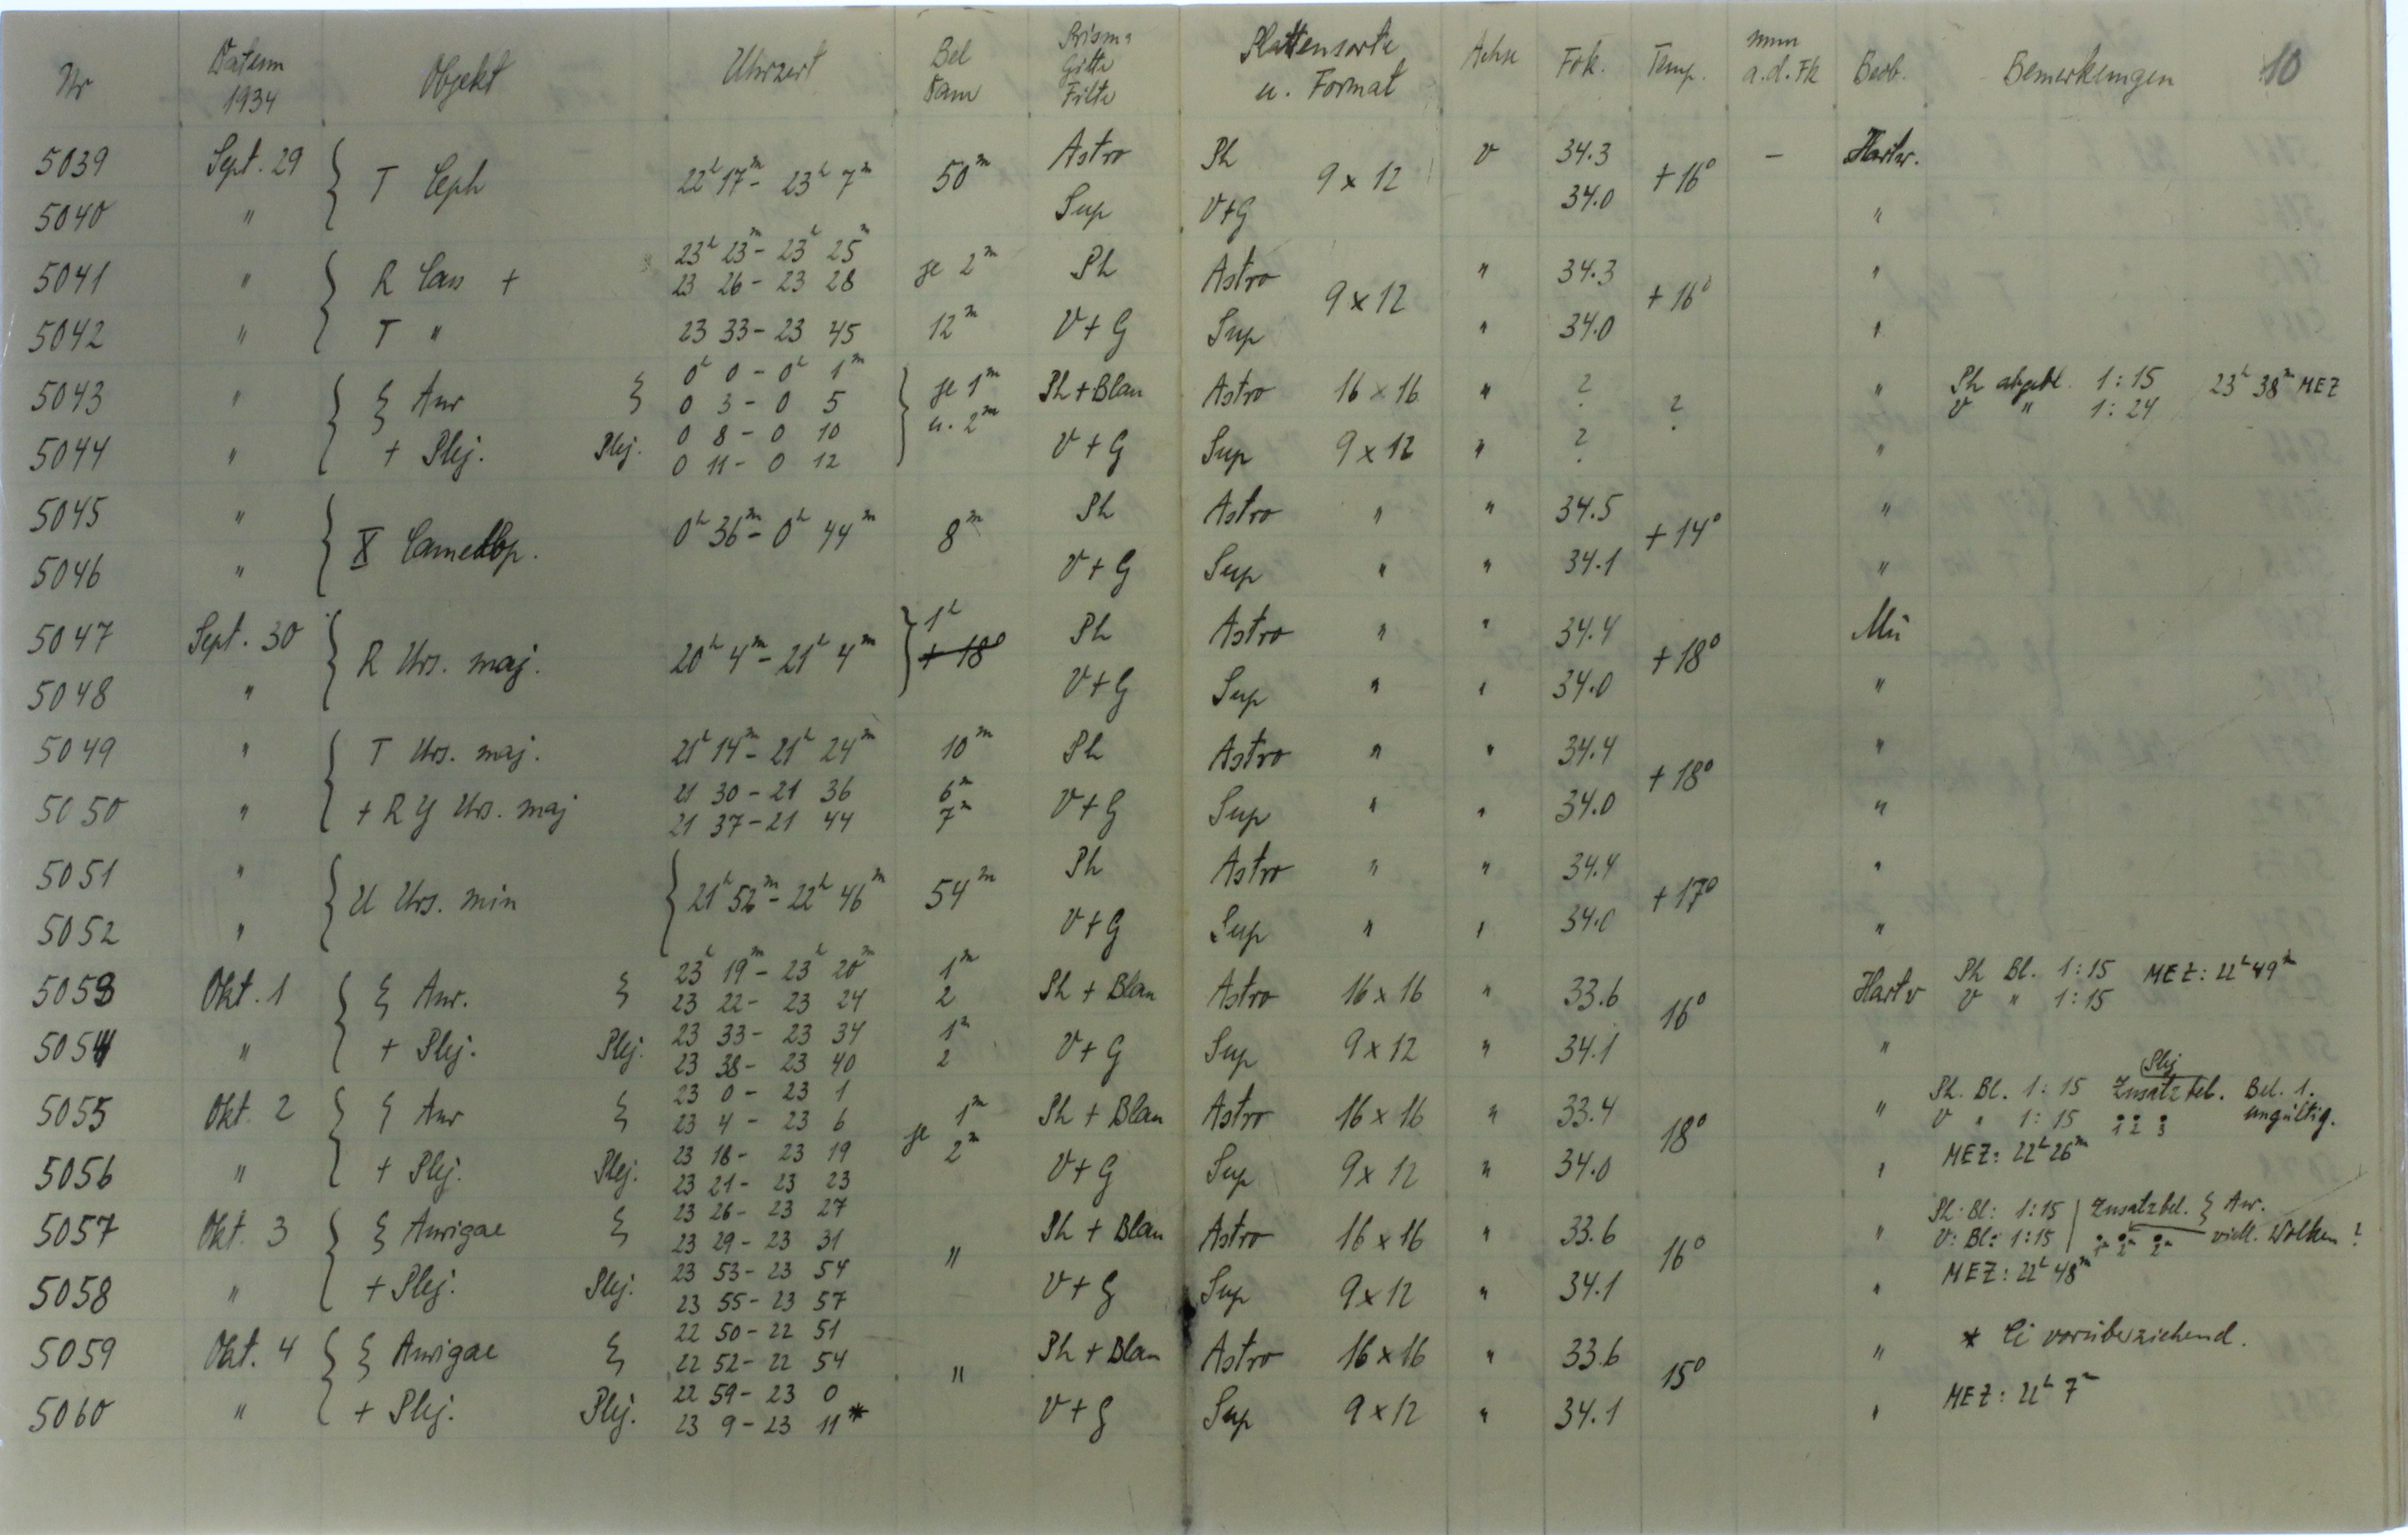 Nr Datum 1934 Objekt Uhrzeit Bel Prisma Gitter Filter Plattensorte u. Format Achse Fok. Temp. mm a.d. Fk Beob. Bemerkungen 10
5039 Sept. 29 { T Ceph 22h 17m - 23h 7m 50m Astro Ph 9 x 12 v 34.3 + 16° - Hartw.
5040 " Sup V+G 34.0 "
23h 23m - 23h 25m
5041 " { R Cass + 23 26 - 23 28 je 2m Ph Astro 9 x 12 " 34.3 + 16° "
5042 " T " 23 33 - 23 45 12m V + G Sup " 34.0 "
0h 0 - 0h 1m
5043 " { ξ Aur ξ 0 3 - 0 5 } je 1m Ph + Blau Astro 16 x 16 " ? ? " Ph abgebl. 1:15 23h 38m MEZ
0 8 - 0 10 u. 2m V " 1:24
5044 " + Plej. Plej. 0 11 - 0 12 V + G Sup 9 x 12 " ? "
5045 " { X Camelop. 0h 36m - 0h 44m 8m Ph Astro " " 34.5 + 14° "
5046 " V + G Sup " " 34.1 "
5047 Sept. 30 { R Urs. maj. 20h 4m - 21h 4m } 1h + 18° Ph Astro " " 34.4 + 18° Mü
5048 " V + G Sup " " 34.0 "
5049 " { T Urs. maj. 21h 14m - 21h 24m 10m Ph Astro " " 34.4 + 18° "
21 30 - 21 36 6m
5050 " + R Y Urs. maj 21 37 - 21 44 7m V + G Sup " " 34.0 "
5051 " { U Urs. min { 21h 52m - 22h 46m 54m Ph Astro " " 34.4 + 17° "
5052 " V + G Sup " " 34.0 "
23h 19m - 23h 20m 1m
5053 Okt. 1 { ξ Aur. ξ 23 22 - 23 24 2 Ph + Blau Astro 16 x 16 " 33.6 16° Hartw Ph Bl. 1:15 MEZ: 22h 49m
23 33 - 23 34 1m V " 1:15
5054 " + Plej. Plej. 23 38 - 23 40 2 V + G Sup 9 x 12 " 34.1 "
23 0 - 23 1 Plej
5055 Okt. 2 { ξ Aur ξ 23 4 - 23 6 je 1m Ph + Blau Astro 16 x 16 " 33.4 18° " Ph. Bl. 1:15 Zusatzbel. Bel. 1.
23 18 - 23 19 2m V " 1:15 1 2 3 ungültig.
5056 " + Plej. Plej. 23 21 - 23 23 V + G Sup 9 x 12 " 34.0 " MEZ: 22h 26m
23 26 - 23 27 Ph. Bl: 1:15 | Zusatzbel. ξ Aur.
5057 Okt. 3 { ξ Aurigae ξ 23 29 - 23 31 " Ph + Blau Astro 16 x 16 " 33.6 16° " V: Bl: 1:15 | 1m 2m 2m viell. Wolken?
23 53 - 23 54 MEZ: 22h 48m
5058 " + Plej. Plej. 23 55 - 23 57 V + G Sup 9 x 12 " 34.1 "
22 50 - 22 51
5059 Okt. 4 { ξ Aurigae ξ 22 52 - 22 54 " Ph + Blau Astro 16 x 16 " 33.6 15° " * Ci vorüberziehend.
22 59 - 23 0
5060 " + Plej. Plej. 23 9 - 23 11 * V + G Sup 9 x 12 " 34.1 " MEZ: 22h 7m